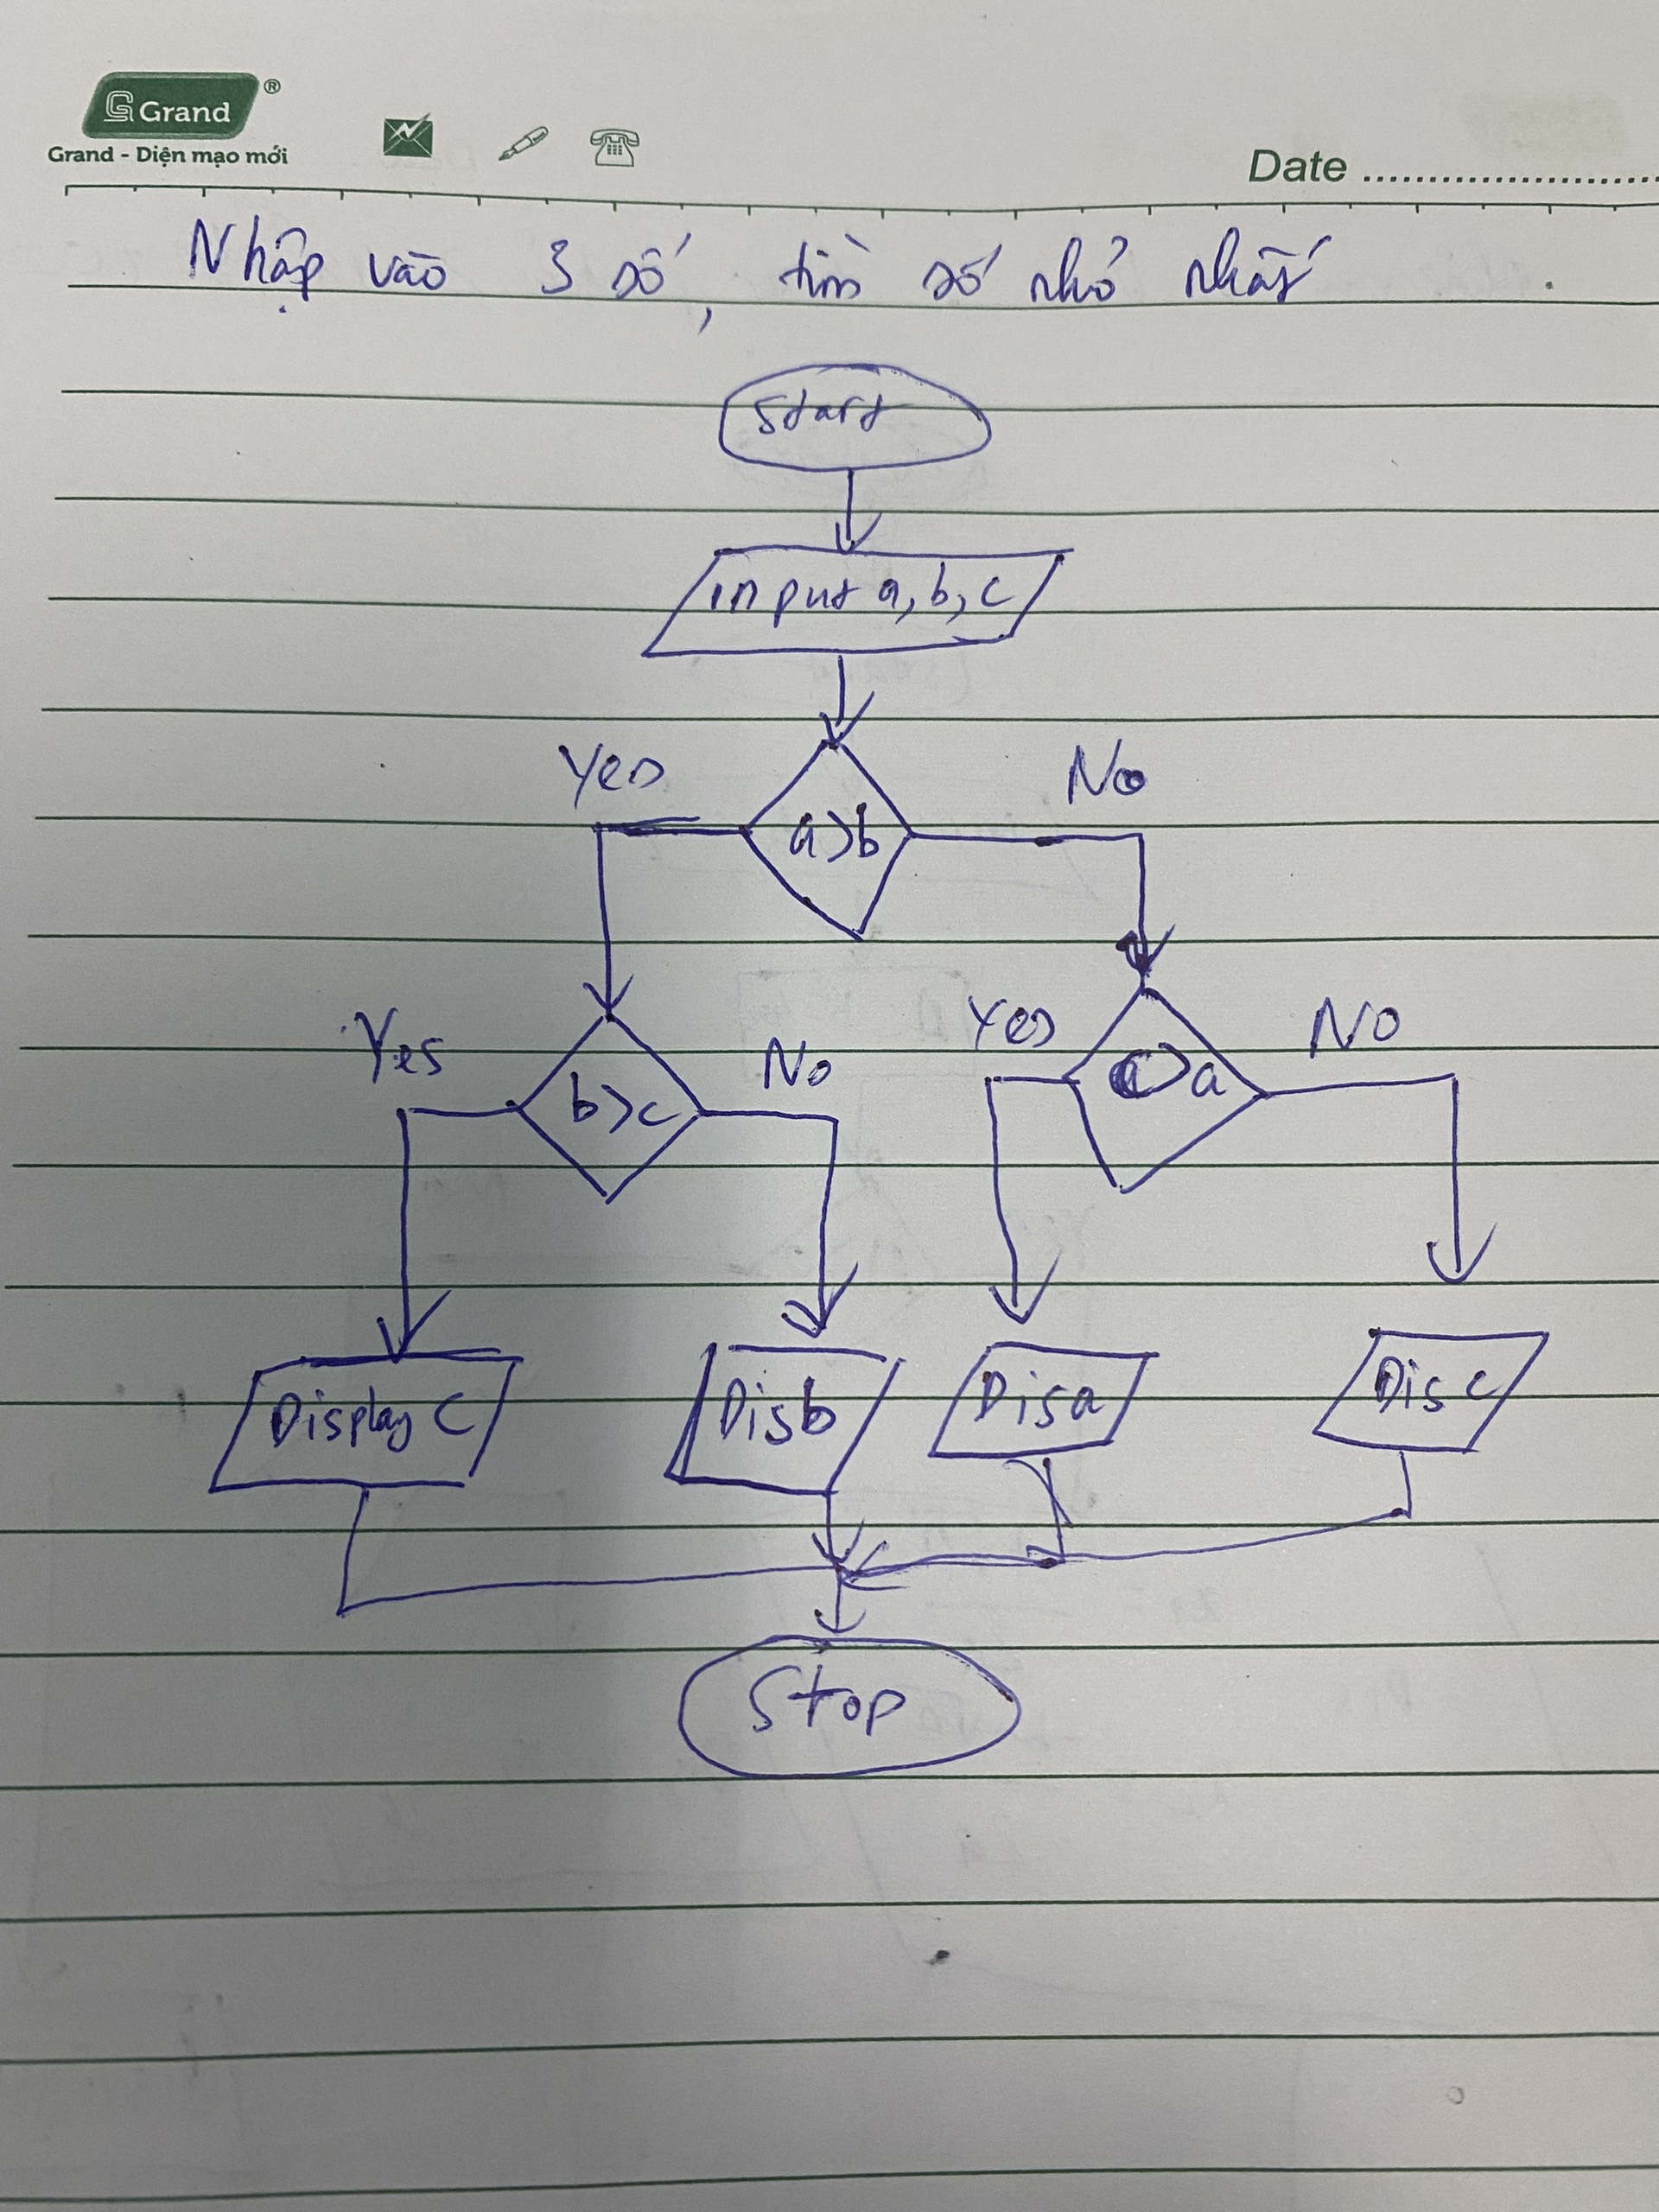 Grand ®
Grand - Diện mạo mới
Date
Nhập vào 3 số, tìm số nhỏ nhất.
Start
input a, b, c
Yes
No
a>b
Yes
No
Yes
No
b>c
c>a
Display C
Dis b
Dis a
Dis c
Stop